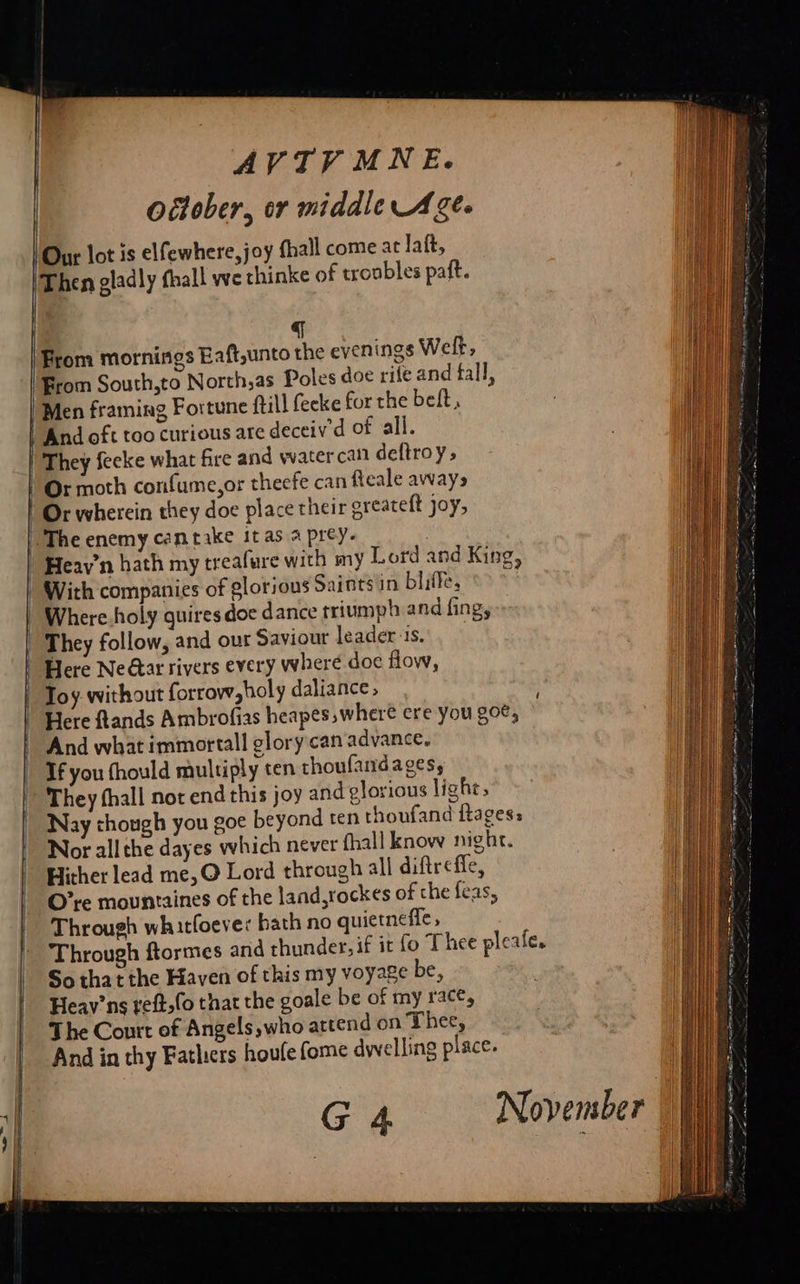 AVTVMNE.
October, or middle Age.
Our lot is elſewhere, joy ſhall come at laſt,
Then gladly ſhall we thinke of troubles paſt.
¶
From mornings Eaſt, unto the evenings Weſt,
From South, to North, as Poles doe riſe and fall,
Men framing Fortune ſtill ſeeke for the beſt,
And oft too curious are deceiv'd of all.
They ſeeke what fire and water can deſtroy,
Or moth conſume, or theefe can ſteale away,
Or wherein they doe place their greateſt joy,
The enemy can take it as a prey.
Heav'n hath my treaſure with my Lord and King,
With companies of glorious Saints in bliſſe,
Where holy quires doe dance triumph and ſing,
They follow, and our Saviour leader is.
Here Nectar rivers every where doe flow,
Ioy without ſorrow, holy daliance,
Here ſtands Ambroſias heapes, where ere you goe,
And what immortall glory can advance.
If you ſhould multiply ten thouſand ages,
They ſhall not end this joy and glorious light,
Nay though you goe beyond ten thouſand ſtages,
Nor all the dayes which never ſhall know night.
Hither lead me, O Lord through all diſtreſſe,
O're mountaines of the land, rockes of the ſeas,
Through whatſoever hath no quietneſſe,
Through ſtormes and thunder, if it ſo Thee pleaſe.
So that the Haven of this my voyage be,
Heav'ns reſt, ſo that the goale be of my race,
The Court of Angels, who attend on Thee,
And in thy Fathers houſe ſome dwelling place.
G 4 November